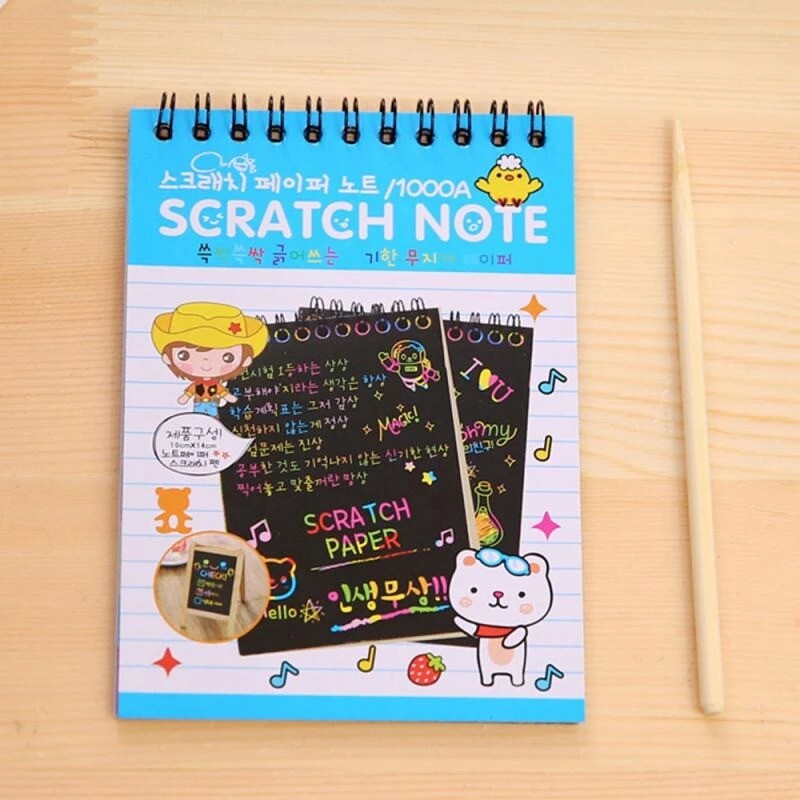 스크래치 페이퍼 노트 /1000A
SCRATCH NOTE
쓱싹쓱싹 긁어쓰는 기한 무지개 페이퍼
1등하는 상상
공부해야지라는 생각은 항상
학습계획표는 그저 감상
실천하지 않는게 정상
시험문제는 진상
공부한 것도 기억나지 않는 신기한 현상
찍어놓고 맞출꺼란 망상
MAGIC!
I U
Oh my
친구!
제품구성!
10cmX14cm
노트페이퍼
스크래치 펜
SCRATCH
PAPER
CHECK!
Hello
인생무상!!